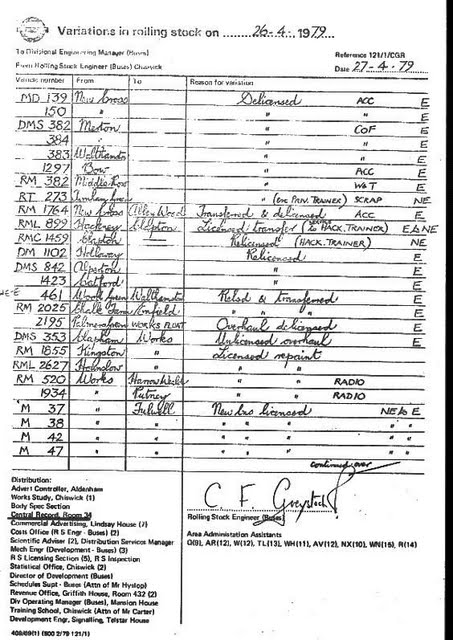 Variations in rolling stock on ........26-4-..1979....
To Divisional Engineering Manager (Buses)
Reference 121/1/CGR
From Rolling Stock Engineer (Buses) Chiswick
Date 27-4-79
Vehicle number From To Reason for variation
MD 139 New Cross Delicensed ACC E
150 " " " E
DMS 382 Merton " COF E
384 " " " E
383 Walthamstow " " E
1297 Bow " ACC E
RM 382 Middle Row " W&T E
RT 273 Turnham Green " (ex PRIV. TRAINER) SCRAP NE
RM 1764 New Cross Abbey Wood Transferred & delicensed ACC E
RML 899 Hackney Clapton Licensed transfer (to HACK. TRAINER) E & NE
RMC 1459 Relicensed (HACK. TRAINER) NE
DM 1102 Holloway Relicensed E
DMS 842 " E
1423 Catford " E
461 Wood Green Walthamstow Relsd & transferred E
RM 2025 Chalk Farm Enfield " " E
2195 WORKS FLOAT Overhaul delicensed E
DMS 353 Clapham Works Unlicensed overhaul E
RM 1855 Kingston " Licensed repaint
RML 2627 Hounslow " " "
RM 520 Works Harrow Weald RADIO
1934 " Putney RADIO
M 37 " Fulwell New bus licensed NE to E
M 38 " " " " " "
M 42 " " " " " "
M 47 " " " " " "
continued over
Distribution:
Advert Controller, Aldenham
Works Study, Chiswick (1)
Body Spec Section
Central Record, Room 34
Commercial Advertising, Lindsay House (7)
Costs Office (R S Engr - Buses) (2)
Scientific Adviser (2), Distribution Services Manager
Mech Engr (Development - Buses) (3)
R S Licensing Section (5), R S Inspection
Statistical Office, Chiswick (2)
Director of Development (Buses)
Schedules Supt - Buses (Attn of Mr Hyslop)
Revenue Office, Griffith House, Room 432 (2)
Div Operating Manager (Buses), Mansion House
Training School, Chiswick (Attn of Mr Carter)
Development Engr, Signalling, Telstar House
C F Greystock
Rolling Stock Engineer (Buses)
Area Administration Assistants
O(9), AR(12), W(12), TL(13), WH(11), AV(12), NX(10), WN(15), R(14)